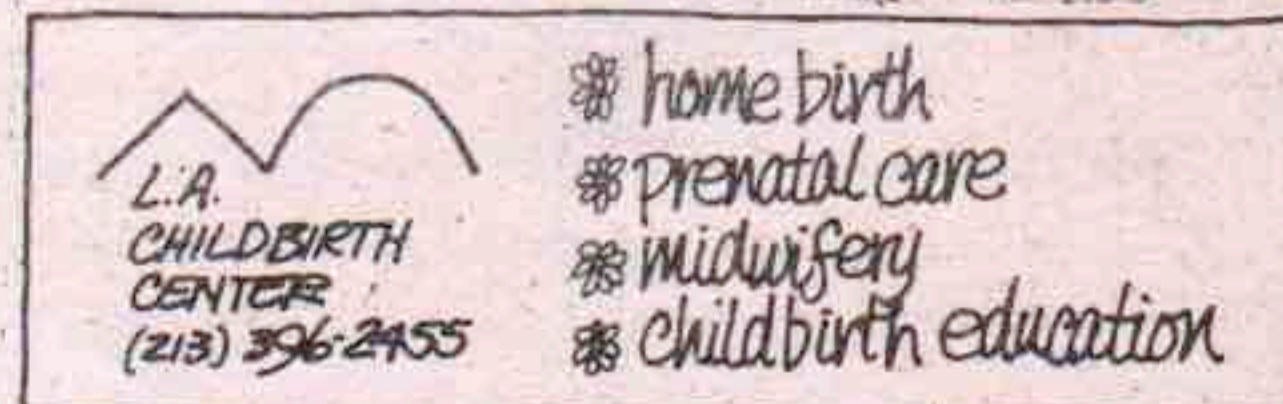 L.A.
CHILDBIRTH
CENTER
(213) 396-2455
home birth
prenatal care
midwifery
childbirth education